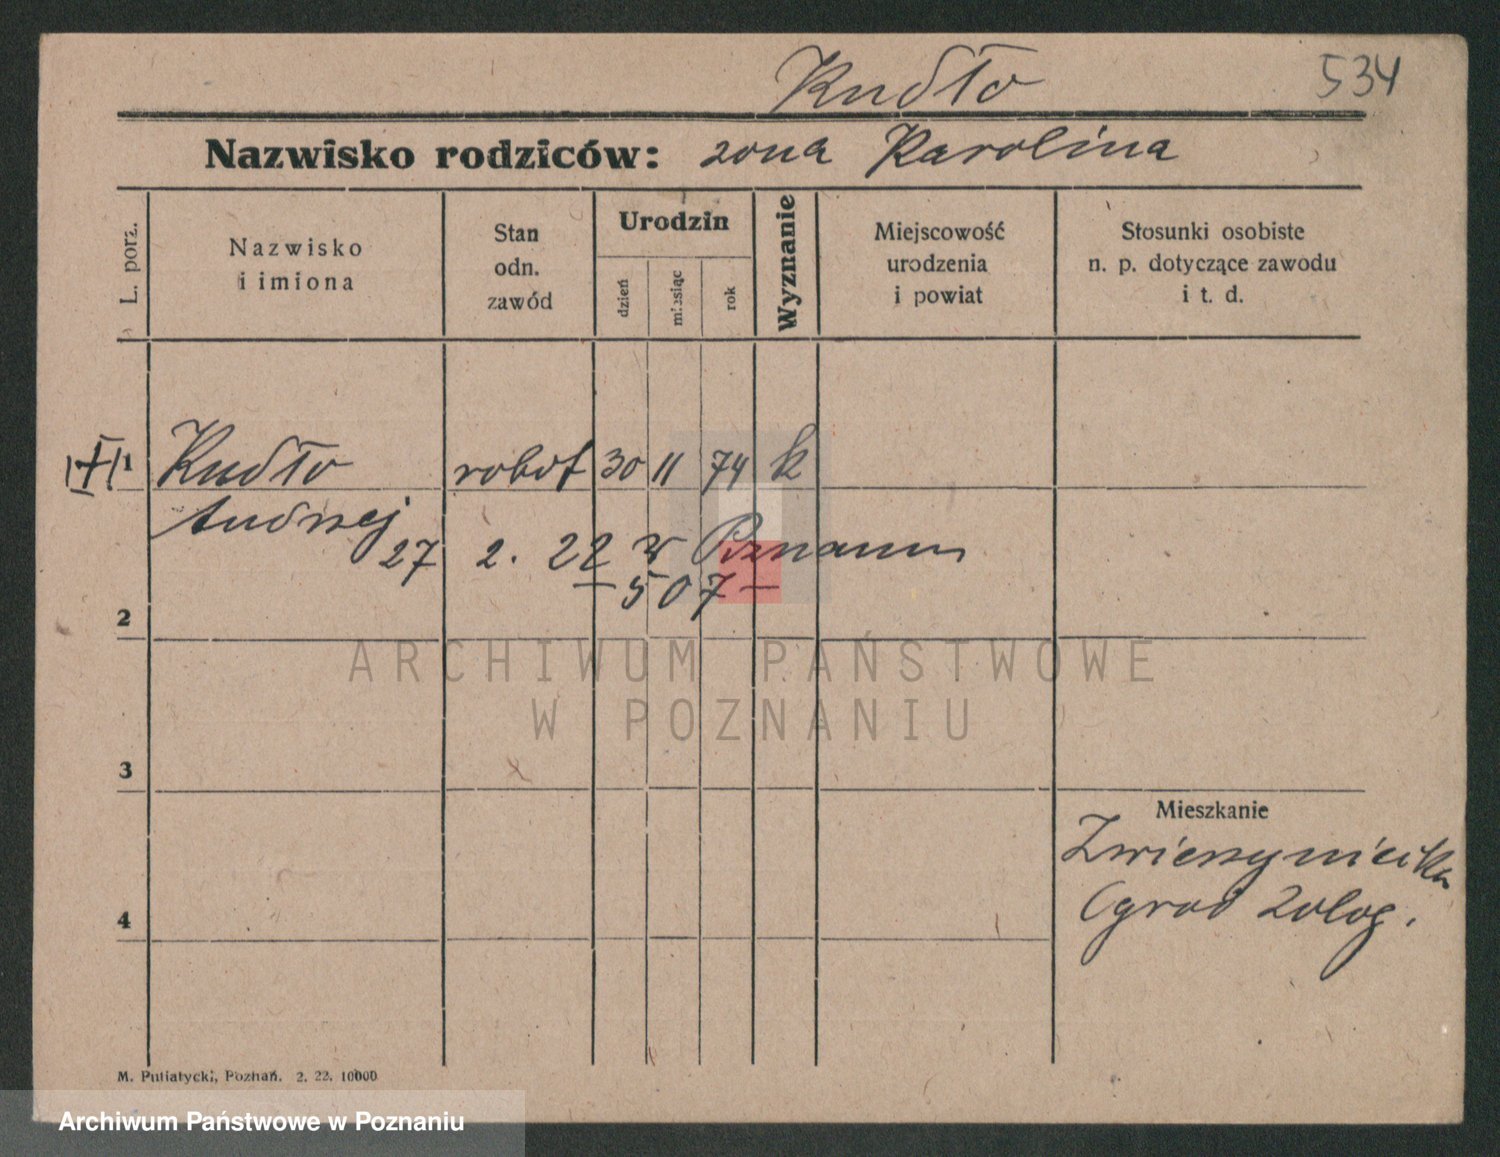 Kudło 534
Nazwisko rodziców: żona Karolina
L. porz.
Nazwisko
i imiona
Stan
odn.
zawód
Urodzin
dzień
miesiąc
rok
Wyznanie
Miejscowość
urodzenia
i powiat
Stosunki osobiste
n. p. dotyczące zawodu
i t. d.
1 Kudło robot 30 11 74 k
Andrzej
27 2. 22 w Poznaniu
— 507 —
2
ARCHIWUM PAŃSTWOWE
W POZNANIU
3
Mieszkanie
Zwierzyniecka
Ogród Zolog.
4
M. Putiatycki, Poznań. 2. 22. 10000
Archiwum Państwowe w Poznaniu